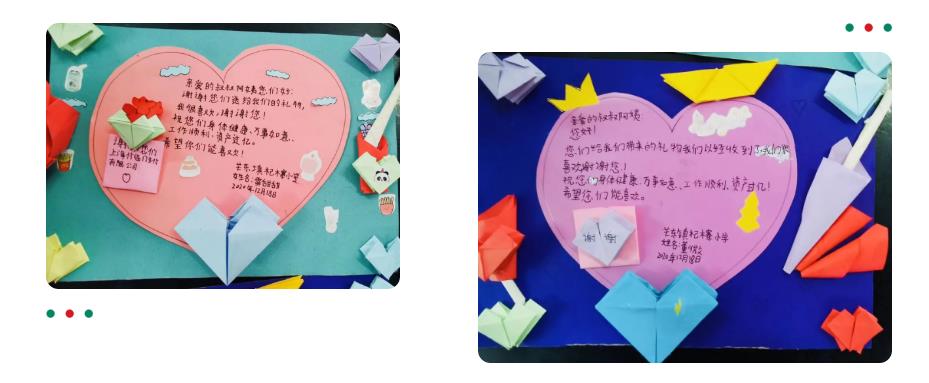 亲爱的叔叔阿姨您们好:
谢谢您们送给我们的礼物,
我很喜欢,谢谢您!
祝您们身体健康、万事如意、
工作顺利、资产过亿。
希望你们能喜欢!
有限公司
芒东镇杞木寨小学
2020年12月18日
亲爱的叔叔阿姨
您好!
您们给我们带来的礼物我们以经收到
喜欢谢谢您!
祝您们身体健康、万事如意、工作顺利、资产过亿!
希望您们能喜欢。
谢谢
芒东镇杞木寨小学
姓名:董
2020年12月18日